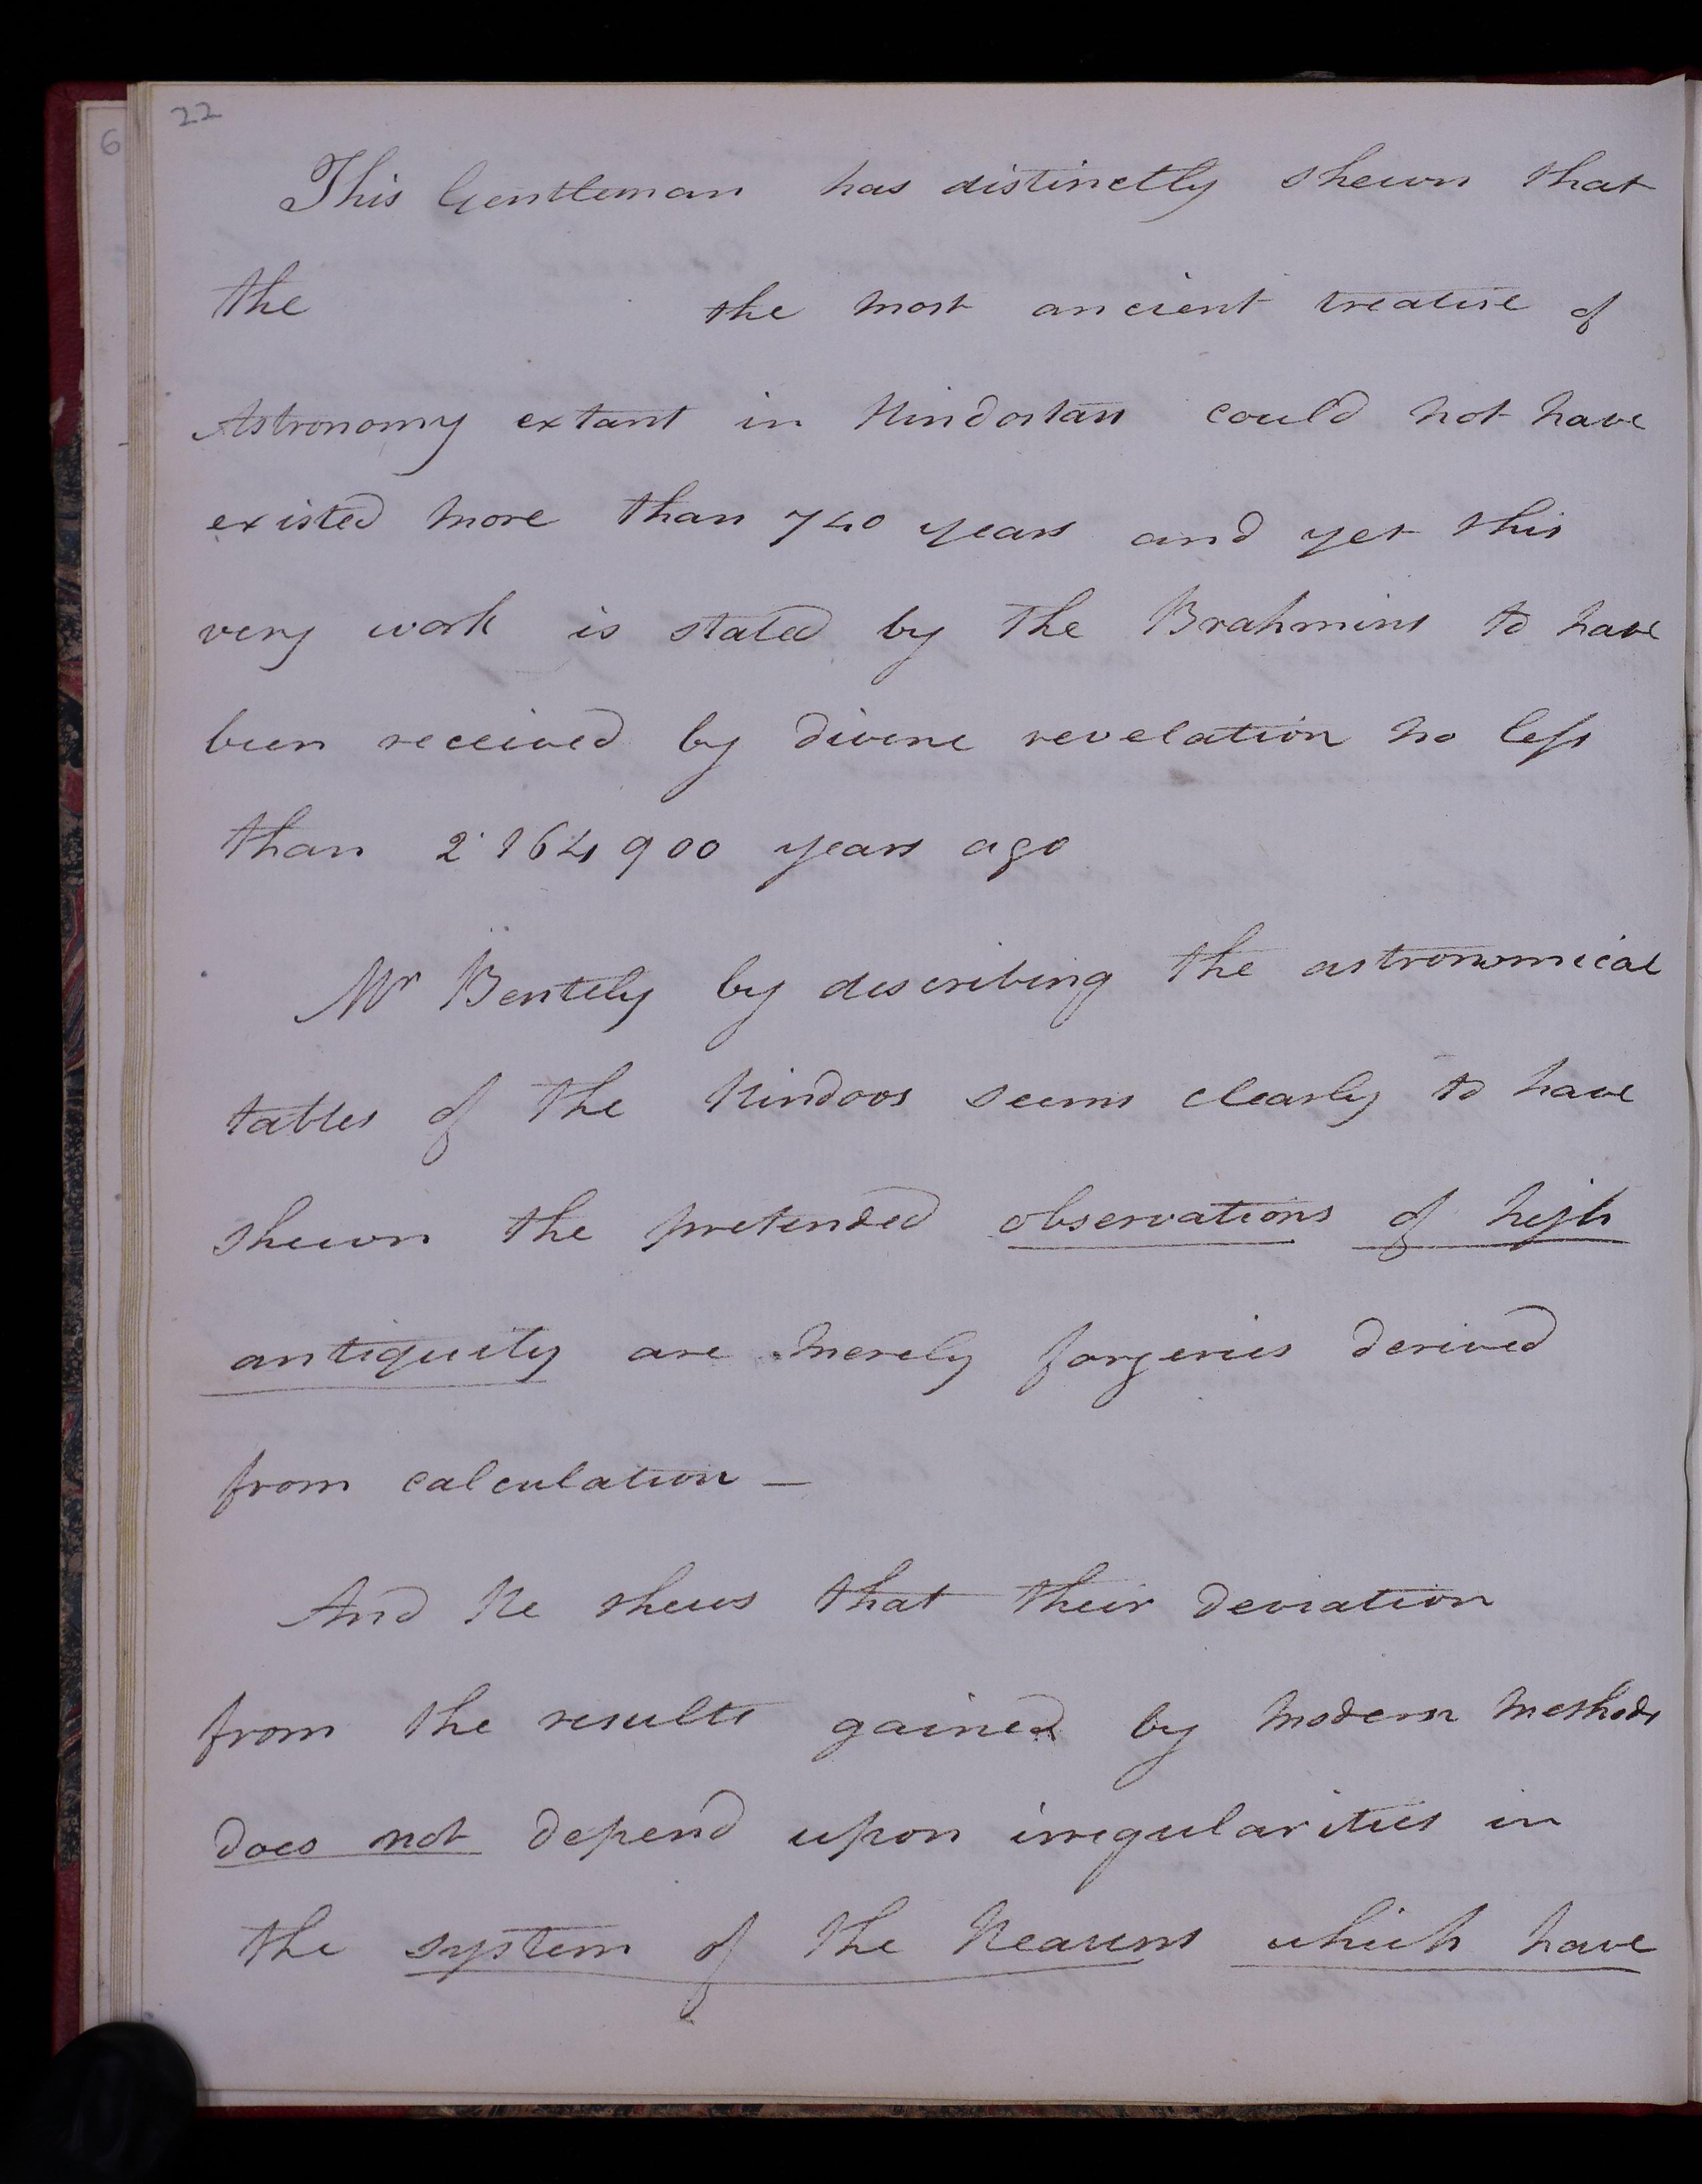 22
6
This Gentleman has distinctly shewn that
the the most ancient treatise of
Astronomy extant in Hindostan could not have
existed more than 740 years and yet this
very work is stated by the Brahmins to have
been received by divine revelation no less
than 2164900 years ago
Mr Bentely by describing the astronomical
tables of the Hindoos seems clearly to have
shewn the pretended observations of high
antiquity are merely forgeries derived
from calculation —
And He shews that their deviation
from the results gained by modern methods
does not depend upon irregularities in
the system of the Heavens which have